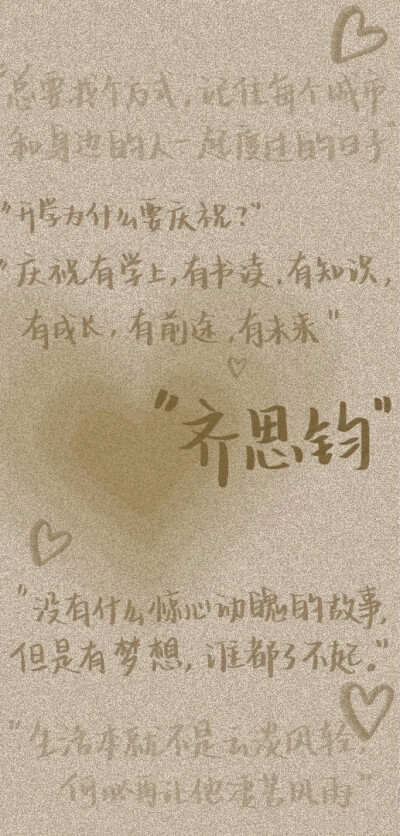 "总要找个方式,记住每个城市
和身边的人一起度过的日子"
"开学为什么要庆祝?"
"庆祝有学上,有书读,有知识,
有成长,有前途,有未来"
"齐思钧"
"没有什么惊心动魄的故事,
但是有梦想,谁都了不起。"
"生活本就不是云淡风轻,
何必再让他凄苦风雨"